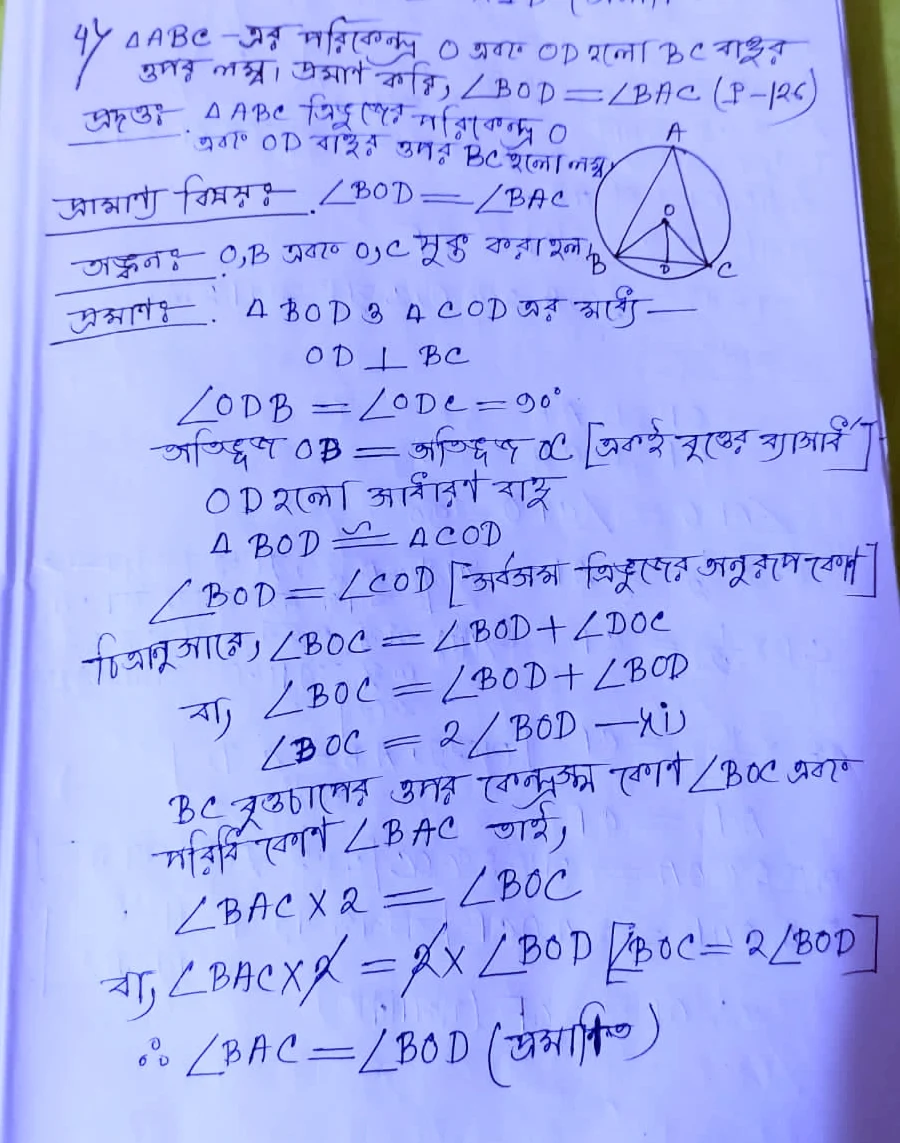 4) ΔABC-এর পরিকেন্দ্র O এবং OD হলো BC বাহুর
উপর লম্ব। প্রমাণ করি, ∠BOD = ∠BAC (P-126)
প্রদত্তঃ ΔABC ত্রিভুজের পরিকেন্দ্র O
এবং OD বাহুর উপর BC হলো লম্ব,
প্রামাণ্য বিষয়ঃ ∠BOD = ∠BAC
অঙ্কনঃ O,B এবং O,C যুক্ত করা হল।
প্রমাণঃ Δ BOD ও Δ COD এর মধ্যে —
A
O
B
D
C
OD ⊥ BC
∠ODB = ∠ODC = 90°
অতিভুজ OB = অতিভুজ OC [একই বৃত্তের ব্যাসার্ধ]
OD হলো সাধারণ বাহু
Δ BOD ≅ ΔCOD
∠BOD = ∠COD [সর্বসম ত্রিভুজের অনুরূপ কোণ]
চিত্রানুসারে, ∠BOC = ∠BOD + ∠DOC
বা, ∠BOC = ∠BOD + ∠BOD
∠BOC = 2∠BOD —(i)
BC বৃত্তচাপের উপর কেন্দ্রস্থ কোণ ∠BOC এবং
পরিধি কোণ ∠BAC তাই,
∠BAC × 2 = ∠BOC
বা, ∠BAC × 2 = 2 × ∠BOD [∠BOC = 2∠BOD]
∴ ∠BAC = ∠BOD (প্রমাণিত)